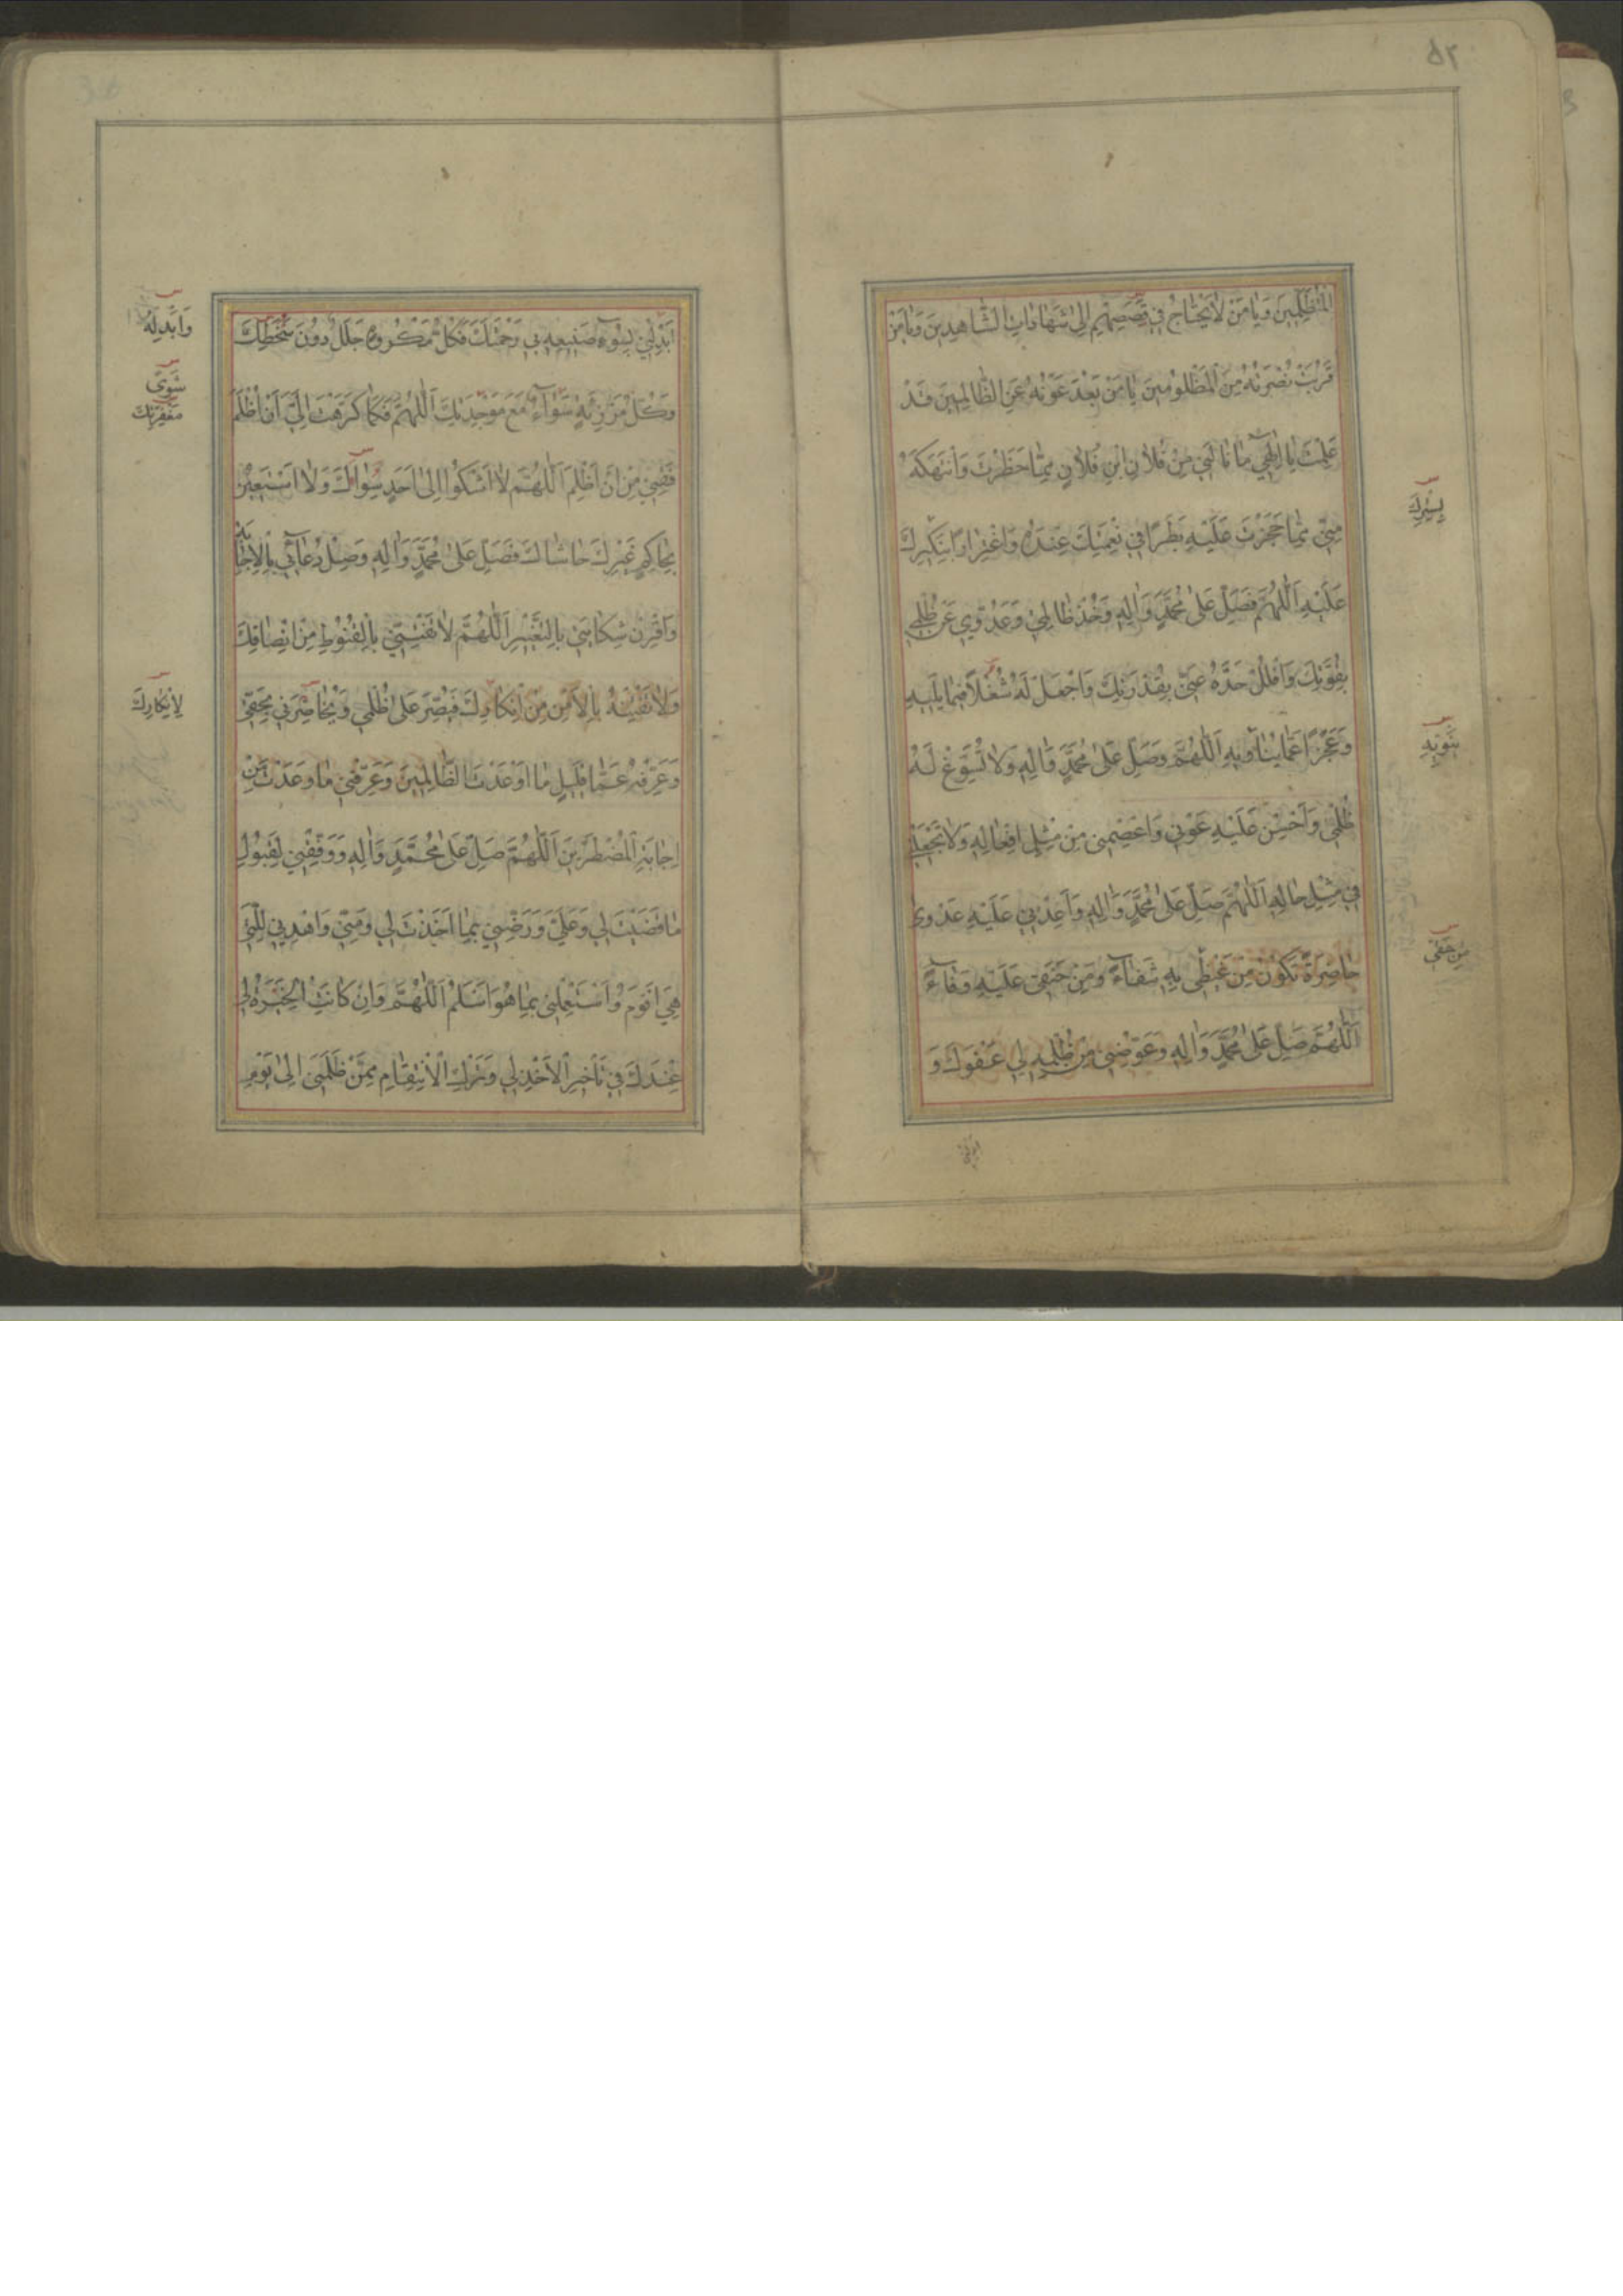 ٥٢
الْمُتَظَلِّمِينَ وَيَا مَنْ لَا يَحْتَاجُ فِي قِصَصِهِمْ إِلَى شَهَادَاتِ الشَّاهِدِينَ وَيَا مَنْ
قَرُبَتْ نُصْرَتُهُ مِنَ الْمَظْلُومِينَ يَا مَنْ بَعُدَ عَوْنُهُ عَنِ الظَّالِمِينَ قَدْ
عَلِمْتَ يَا إِلٰهِي مَا نَالَنِي مِنْ فُلَانِ ابْنِ فُلَانٍ مِمَّا حَظَرْتَ وَانْتَهَكَهُ
مِنِّي مِمَّا حَجَزْتَ عَلَيْهِ بَطَرًا فِي نِعْمَتِكَ عِنْدَهُ وَاغْتِرَارًا بِنَكِيرِكَ
بِسِتْرِكَ
عَلَيْهِ اَللّٰهُمَّ فَصَلِّ عَلَى مُحَمَّدٍ وَاٰلِهِ وَخُذْ ظَالِمِي وَعَدُوِّي عَنْ ظُلْمِي
بِقُوَّتِكَ وَافْلُلْ حَدَّهُ عَنِّي بِقُدْرَتِكَ وَاجْعَلْ لَهُ شُغْلًا فِيمَا يَلِيهِ
وَعَجْزًا عَمَّا يُنَاوِيهِ اَللّٰهُمَّ وَصَلِّ عَلَى مُحَمَّدٍ وَاٰلِهِ وَلَا تُسَوِّغْ لَهُ
ظُلْمِي وَاَحْسِنْ عَلَيْهِ عَوْنِي وَاعْصِمْنِي مِنْ مِثْلِ اَفْعَالِهِ وَلَا تَجْعَلْنِي
فِي مِثْلِ حَالِهِ اَللّٰهُمَّ صَلِّ عَلَى مُحَمَّدٍ وَاٰلِهِ وَاَعِدْنِي عَلَيْهِ عَدْوٰى
حَاضِرَةً تَكُونُ مِنْ غَيْظِي بِهِ شِفَاءً وَمِنْ حَنَقِي عَلَيْهِ وَفَاءً
مِنْ حَقِّي
اَللّٰهُمَّ صَلِّ عَلَى مُحَمَّدٍ وَاٰلِهِ وَعَوِّضْنِي مِنْ ظُلْمِهِ لِي عَفْوَكَ وَ
اَبْدِلْنِي
اَبْدِلْنِي بِسُوءِ صَنِيعِهِ بِي رَحْمَتَكَ فَكُلُّ مَكْرُوهٍ جَلَلٌ دُونَ سَخَطِكَ
وَاَبْدِلْهُ
وَكُلُّ مَرْزِئَةٍ سَوَاءٌ مَعَ مَوْجِدَتِكَ اَللّٰهُمَّ فَكَمَا كَرَّهْتَ اِلَيَّ اَنْ اُظْلَمَ
شَوًى
مَغْفِرَتِكَ
فَقِنِي مِنْ اَنْ اَظْلِمَ اَللّٰهُمَّ لَا اَشْكُوا اِلٰى اَحَدٍ سِوَاكَ وَلَا اَسْتَعِينُ
بِحَاكِمٍ غَيْرِكَ حَاشَاكَ فَصَلِّ عَلَى مُحَمَّدٍ وَاٰلِهِ وَصِلْ دُعَائِي بِالْاِجَابَةِ
وَاقْرِنْ شِكَايَتِي بِالتَّغْيِيرِ اَللّٰهُمَّ لَا تَفْتِنِّي بِالْقُنُوطِ مِنْ اِنْصَافِكَ
وَلَا تَفْتِنْهُ بِالْاَمْنِ مِنْ اِنْكَارِكَ فَيُصِرَّ عَلَى ظُلْمِي وَيُحَاضِرَنِي بِحَقِّي
لِاِنْكَارِكَ
وَعَرِّفْهُ عَمَّا قَلِيلٍ مَا اَوْعَدْتَ الظَّالِمِينَ وَعَرِّفْنِي مَا وَعَدْتَ مِنْ
اِجَابَةِ الْمُضْطَرِّينَ اَللّٰهُمَّ صَلِّ عَلَى مُحَمَّدٍ وَاٰلِهِ وَوَفِّقْنِي لِقَبُولِ
مَا قَضَيْتَ لِي وَعَلَيَّ وَرَضِّنِي بِمَا اَخَذْتَ لِي وَمِنِّي وَاهْدِنِي لِلَّتِي
هِيَ اَقْوَمُ وَاسْتَعْمِلْنِي بِمَا هُوَ اَسْلَمُ اَللّٰهُمَّ وَاِنْ كَانَتِ الْخِيَرَةُ لِي
عِنْدَكَ فِي تَأْخِيرِ الْاَخْذِ لِي وَتَرْكِ الْاِنْتِقَامِ مِمَّنْ ظَلَمَنِي اِلٰى يَوْمِ